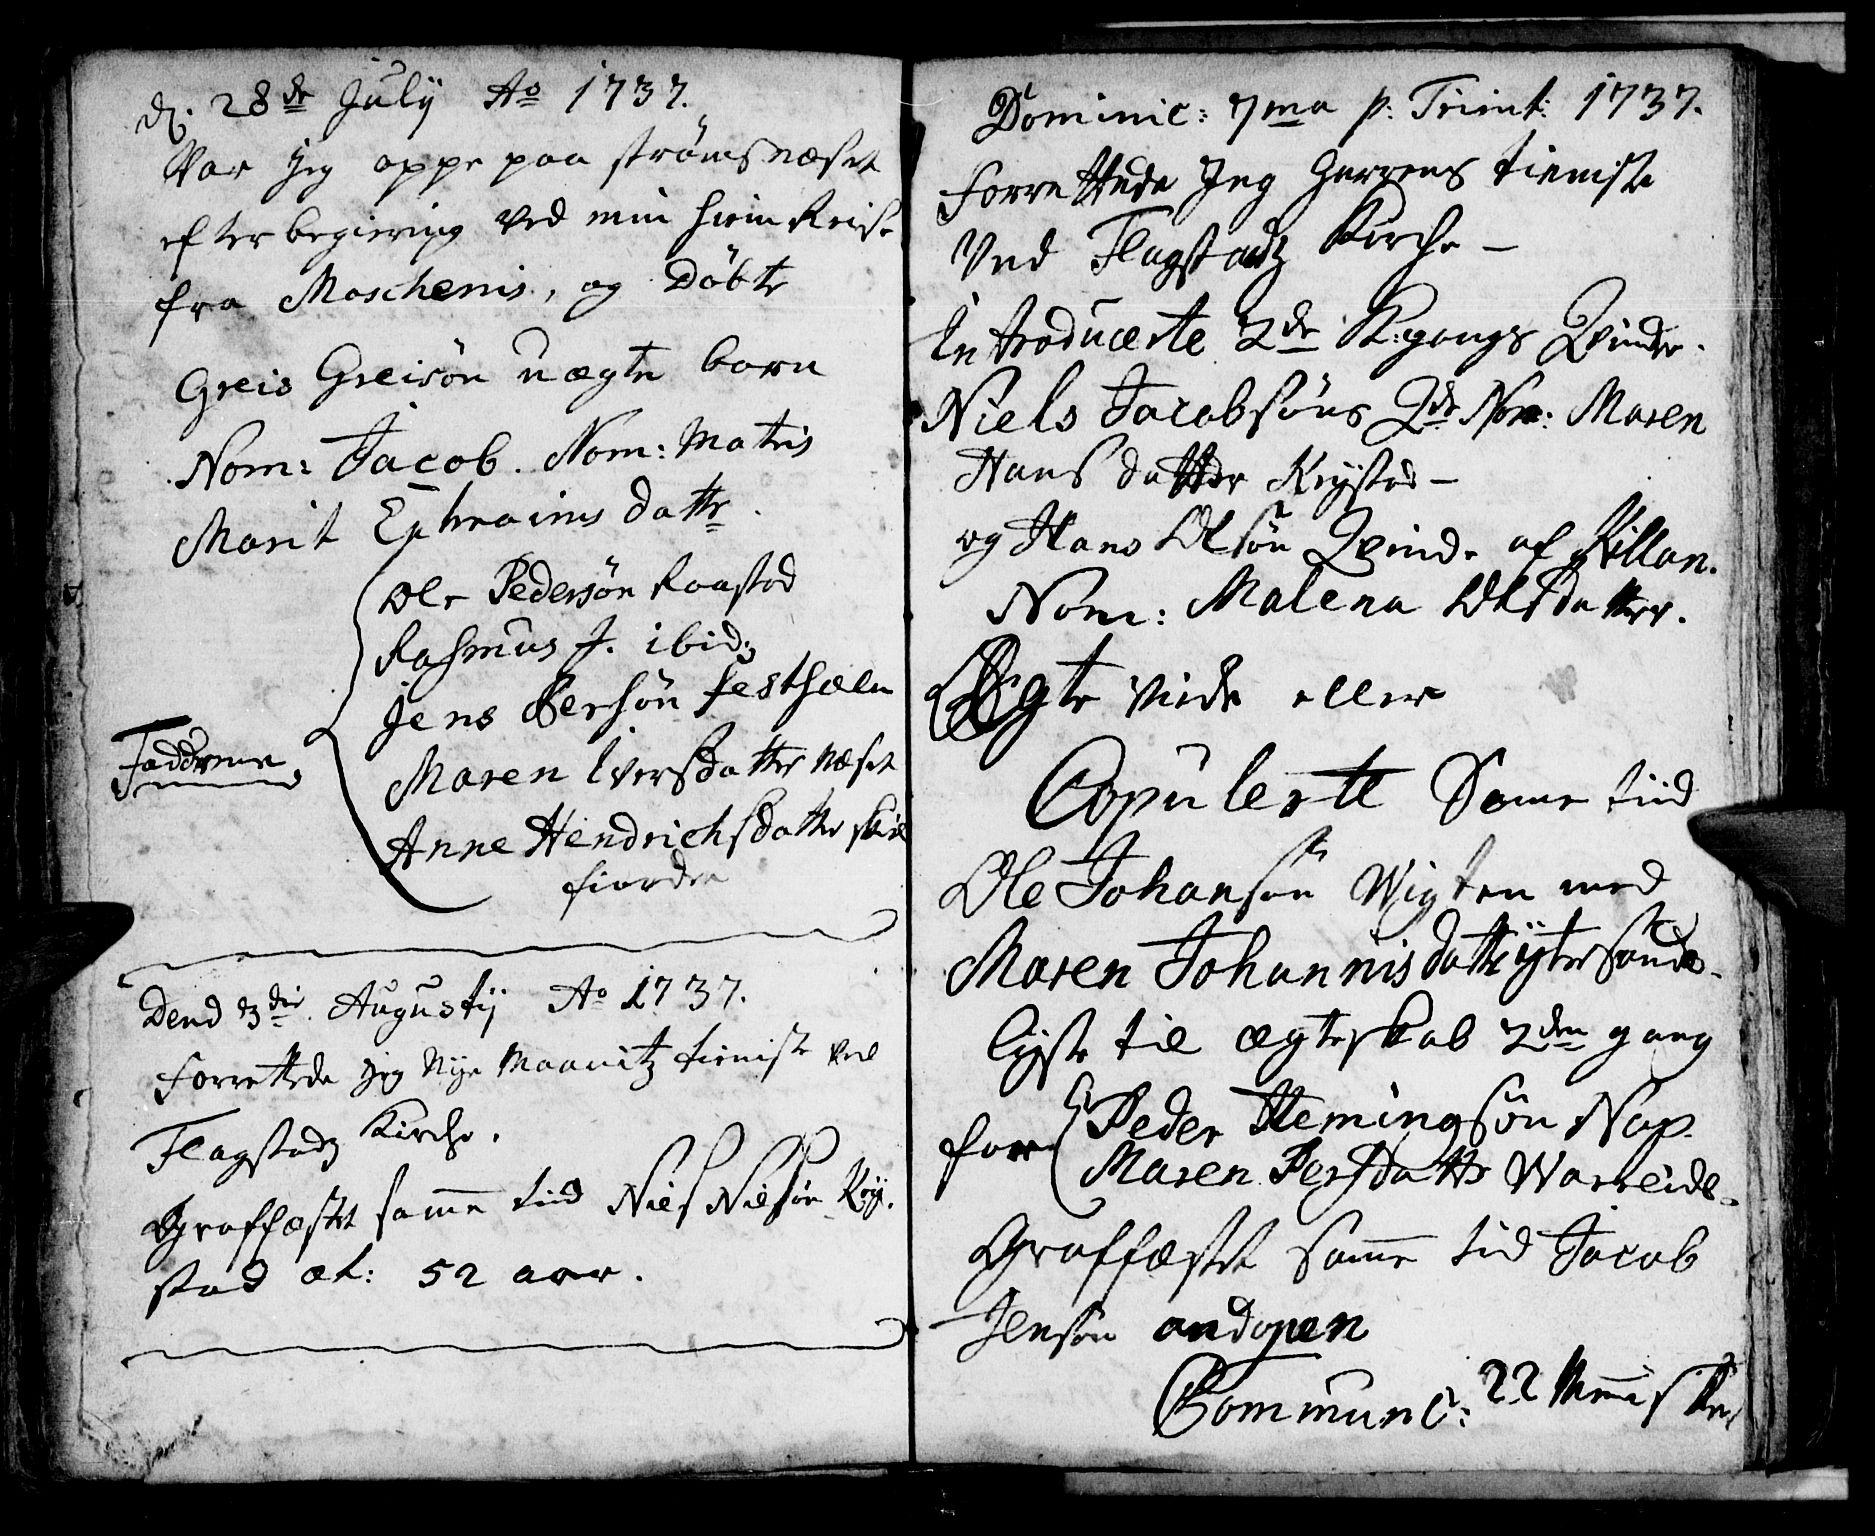 d. 28de July Ao 1737.
War jeg oppe paa strömsnæset
efter begiering ved min hiem Reise
fra Moschenis, og Döbte
Greis Greisön uægte barn
Nom: Jacob. Nom: Matris
Marit Ephraims datter.
Ole Pedersön Raastad
Rasmus J. ibid:
Jens Persön festhælen
Fadderne
Maren Iversdatter Næset
Anne Hendrichsdatter skiel
fiorden
Dend 3die Augustij Ao 1737.
forrettede jeg Nye Maanitz tieniste ved
Flagstadz Kirche.
Graffæstet samme tiid Niels Nielsön Röy.
stad æt: 52 aar.
Dominic: 7ma p: Trinit: 1737.
forrettede Jeg Herrens tieniste
Ved Flagstadz Kirche —
Introducerte 2de K:gangs Qvinder.
Niels Jacobsöns Qde Nom: Maren
Hans datter Röystad —
og Hans Olsön Qvinde af Killan.
Nom: Malena Olsdatter.
Ægte viede eller
Copulerte Same tiid
Ole Johansön Wigten med
Maren Johannisdatter ytersande.
Lyste til ægteskab 2den gang
for Peder Hemingsön Nap.
Maren Persdatter Wareide.
Graffæstet samme tid Jacob
Jensön andopen
Communc: 22 Mennisker